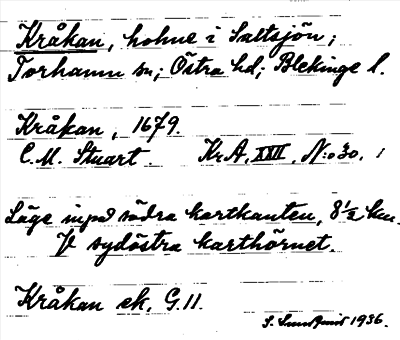 Kråkan, holme i Saltsjön;
Torhamn sn; Östra hd; Blekinge l.
Kråkan, 1679.
C. M. Stuart. Kr.A, XXII, N:o 30.
Läge invid södra kartkanten, 8½ km.
V sydöstra karthörnet.
Kråkan ek. G. 11.
1936.